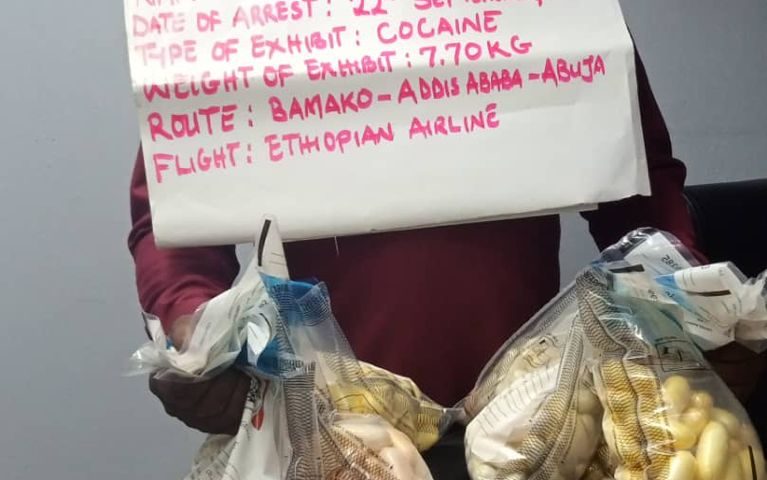 DATE OF ARREST: 22
TYPE OF EXHIBIT: COCAINE
WEIGHT OF EXHIBIT: 7.70KG
ROUTE: BAMAKO-ADDIS ABABA-ABUJA
FLIGHT: ETHIOPIAN AIRLINE